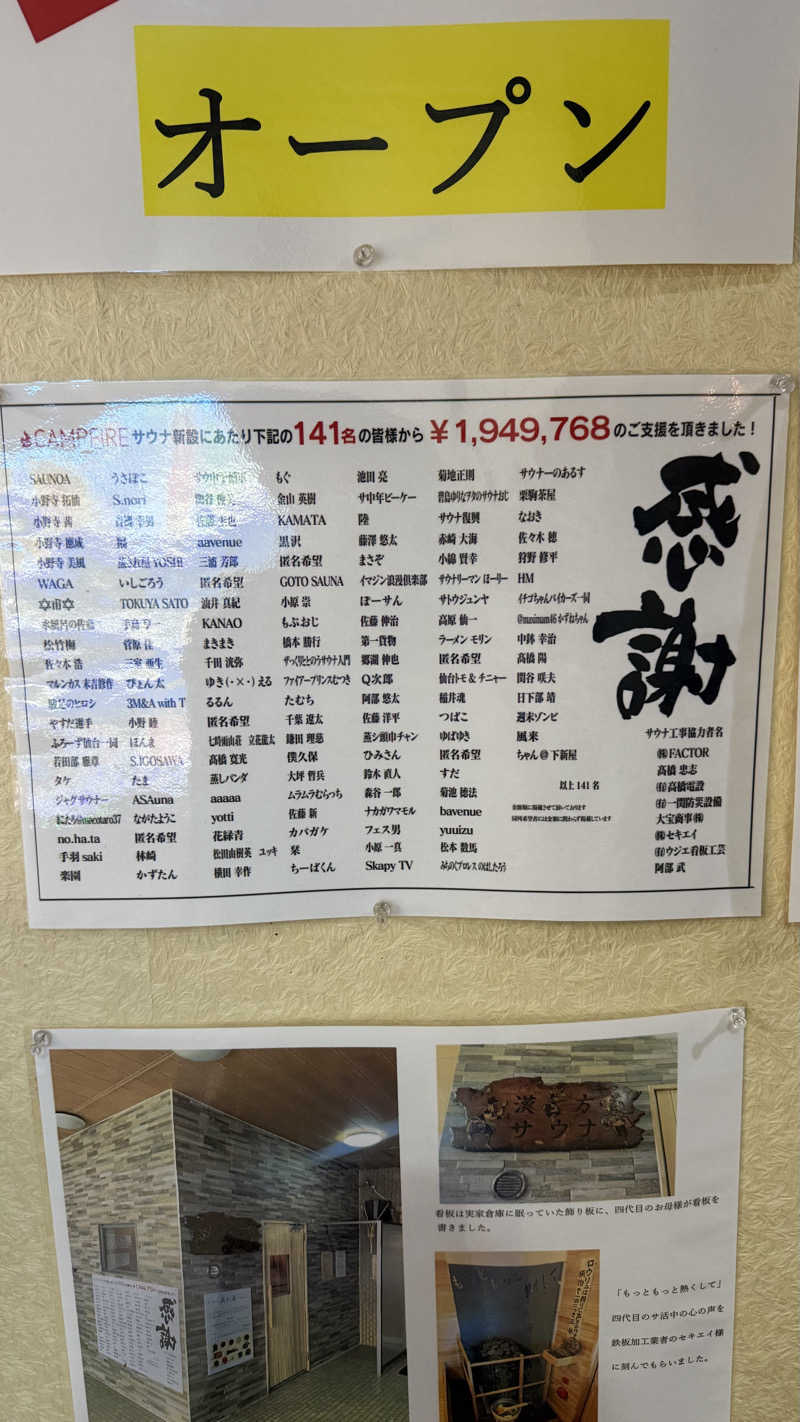 オープン
CAMPFIRE サウナ新設にあたり下記の141名の皆様から ¥1,949,768のご支援を頂きました！
感謝
SAUNOA
小野寺 拓植
小野寺 茜
小野寺 應成
小野寺 美風
WAGA
✡宙✡
水風呂の佐藤
松竹梅
佐々木 浩
マルンカス 末吉修作
駿足のヒロシ
やすだ選手
ふろーず仙台一同
若田部 雅章
タケ
ジャグサウナー
no.ha.ta
手羽 saki
楽園
うさぽこ
S.nori
福
蒸され屋 YOSHI
いしごろう
TOKUYA SATO
菅原 佳
三室 亜生
ぴょん太
3M&A with T
小野 睦
ほんま
S.IGOSAWA
たま
ASAuna
ながたようこ
匿名希望
林崎
かずたん
aavenue
三浦 芳郎
匿名希望
油井 真紀
KANAO
まきまき
千田 洸弥
ゆき(・×・)える
るるん
匿名希望
七時雨山荘 立花龍太
高橋 寛光
蒸しパンダ
aaaaa
yotti
花緑青
松田由樹英 ユッキ
横田 幸作
もぐ
金山 英樹
KAMATA
黒沢
匿名希望
GOTO SAUNA
小原 崇
もぶおじ
橋本 勝行
ざっくりとのうサウナ入門
ファイアープリンスむつき
たむち
千葉 遼太
鎌田 理慈
僕久保
大坪 哲兵
ムラムラむらっち
佐藤 新
カバガケ
栞
ちーばくん
池田 亮
サ中年ビーケー
陸
藤澤 悠太
まさぞ
イマジン浪漫倶楽部
ぽーさん
佐藤 伸治
第一貨物
郷湖 伸也
Q次郎
阿部 悠太
佐藤 洋平
蒸シ頭巾チャン
ひみさん
鈴木 直人
森谷 一郎
ナカガワマモル
フェス男
小原 一真
Skapy TV
菊地正則
サウナ復興
赤崎 大海
小綿 賢幸
サウナリーマン ほーりー
サトウジュンヤ
高原 仙一
ラーメン モリン
匿名希望
仙台トモ & チニャー
稲井魂
つばこ
ゆばゆき
匿名希望
すだ
菊池 徳法
bavenue
yuuizu
松本 数馬
みちのくプロレス のはしたろう
サウナーのあるす
栗駒茶屋
なおき
佐々木 穂
狩野 修平
HM
イチゴちゃんバイカーズ一同
@maximam46 かずねちゃん
中鉢 幸治
高橋 陽
関谷 咲夫
日下部 靖
週末ゾンビ
風来
ちゃん@下新屋
以上 141 名
金額順に掲載させて頂いております
同列希望者には金額に関わらず掲載しています
サウナ工事協力者名
㈱FACTOR
高橋 忠志
㈲高橋電設
㈲一関防災設備
大宝商事㈱
㈱セキエイ
㈲ウジエ看板工芸
阿部 武
漢方
サウナ
看板は実家倉庫に眠っていた飾り板に、四代目のお母様が看板を
書きました。
感謝
「もっともっと熱くして」
四代目のサ活中の心の声を
鉄板加工業者のセキエイ様
に刻んでもらいました。